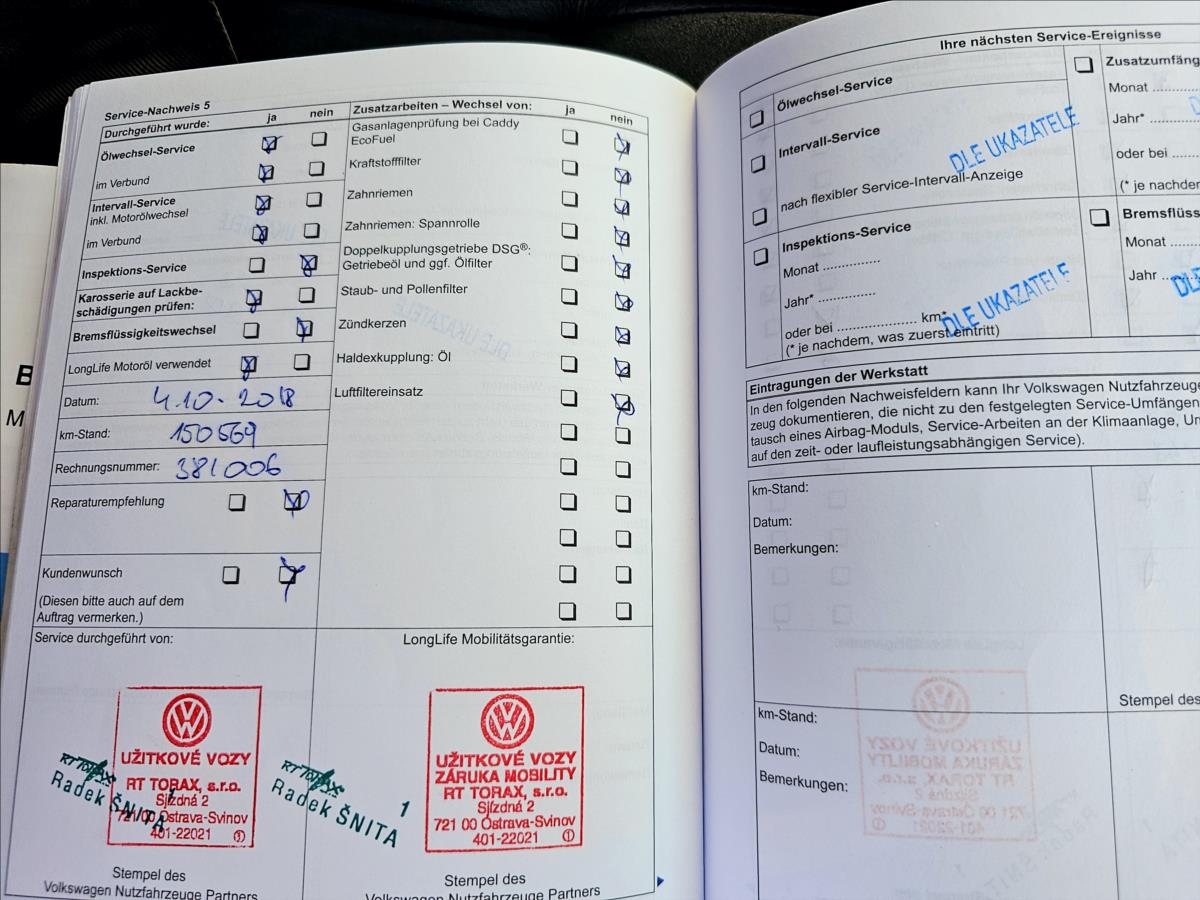 Service-Nachweis 5
Durchgeführt wurde: ja nein
Ölwechsel-Service
im Verbund
Intervall-Service
inkl. Motorölwechsel
im Verbund
Inspektions-Service
Karosserie auf Lackbe-
schädigungen prüfen:
Bremsflüssigkeitswechsel
LongLife Motoröl verwendet
Datum: 4.10.2018
km-Stand: 150569
Rechnungsnummer: 381006
Reparaturempfehlung
Kundenwunsch
(Diesen bitte auch auf dem
Auftrag vermerken.)
Zusatzarbeiten – Wechsel von: ja nein
Gasanlagenprüfung bei Caddy
EcoFuel
Kraftstofffilter
Zahnriemen
Zahnriemen: Spannrolle
Doppelkupplungsgetriebe DSG®:
Getriebeöl und ggf. Ölfilter
Staub- und Pollenfilter
Zündkerzen
Haldexkupplung: Öl
Luftfiltereinsatz
Service durchgeführt von:
UŽITKOVÉ VOZY
RT TORAX, s.r.o.
Sjízdná 2
721 00 Ostrava-Svinov
401-22021 ③
RT TORAX
Radek ŠNITA
1
Stempel des
Volkswagen Nutzfahrzeuge Partners
LongLife Mobilitätsgarantie:
UŽITKOVÉ VOZY
ZÁRUKA MOBILITY
RT TORAX, s.r.o.
Sjízdná 2
721 00 Ostrava-Svinov
401-22021 ①
RT TORAX
Radek ŠNITA
1
Stempel des
Volkswagen Nutzfahrzeuge Partners
Ihre nächsten Service-Ereignisse
Ölwechsel-Service
Intervall-Service
DLE UKAZATELE
nach flexibler Service-Intervall-Anzeige
Inspektions-Service
Monat ...............
Jahr* ...............
DLE UKAZATELE
oder bei .................... km*
(* je nachdem, was zuerst eintritt)
Zusatzumfäng
Monat
Jahr*
oder bei
(* je nachdem
Bremsflüss
Monat
Jahr
DL
Eintragungen der Werkstatt
In den folgenden Nachweisfeldern kann Ihr Volkswagen Nutzfahrzeuge
zeug dokumentieren, die nicht zu den festgelegten Service-Umfängen
tausch eines Airbag-Moduls, Service-Arbeiten an der Klimaanlage, Um
auf den zeit- oder laufleistungsabhängigen Service).
km-Stand:
Datum:
Bemerkungen:
Stempel des
km-Stand:
Datum:
Bemerkungen: